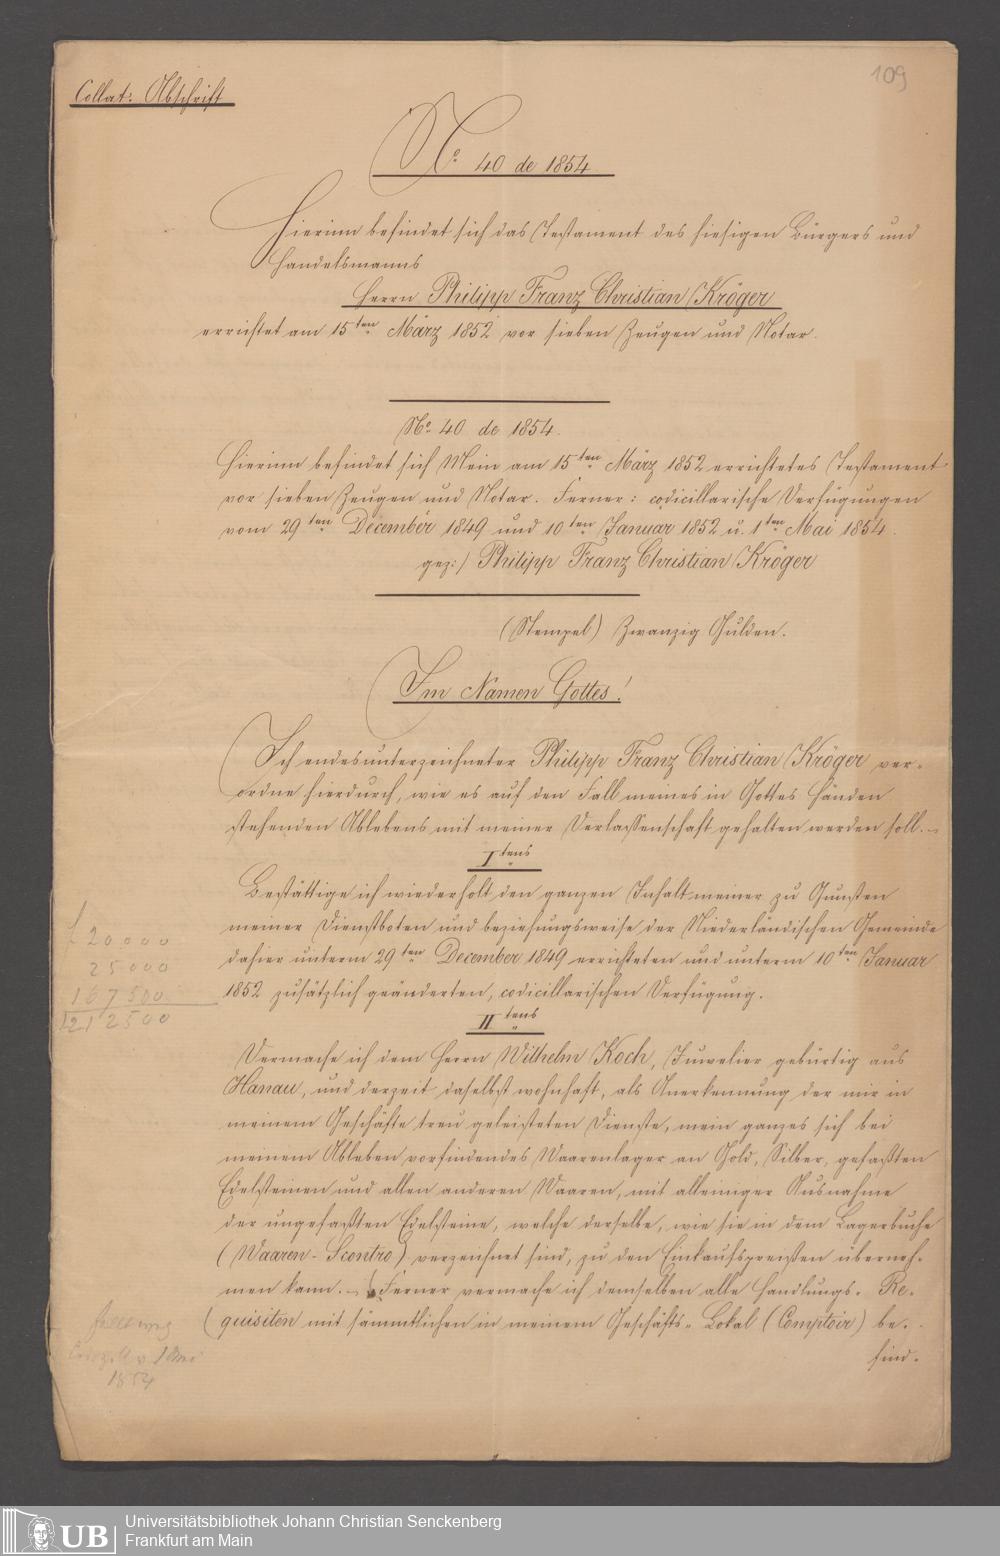 109
Collat: Abschrift
No. 40 de 1854
Hierinn befindet sich das Testament des hiesigen Bürgers und
Handelsmanns
Herrn Philipp Franz Christian Kröger
errichtet am 15ten März 1852 vor sieben Zeugen und Notar.
No. 40 de 1854.
Hierinn befindet sich Mein am 15ten März 1852 errichtetes Testament
vor sieben Zeugen und Notar. Ferner: codicillarische Verfügungen
vom 29ten December 1849 und 10ten Januar 1852 u. 1ten Mai 1854.
gez:/ Philipp Franz Christian Kröger
(Stempel) Zwanzig Gulden.
Im Namen Gottes!
Ich endesunterzeichneter Philipp Franz Christian Kröger ver-
ordne hierdurch, wie es auf den Fall meines in Gottes Händen
stehenden Ablebens mit meiner Verlassenschaft gehalten werden soll.
Itens
Bestättige ich wiederholt den ganzen Inhalt meiner zu Gunsten
meiner Dienstboten und beziehungsweise der Niederländischen Gemeinde
dahier unterm 29ten December 1849 errichteten und unterm 10ten Januar
1852 zusätzlich geänderten, codicillarischen Verfügung.
f 20000
25000
167500
212500
IItens
Vermache ich dem Herrn Wilhelm Koch, Juwelier gebürtig aus
Hanau, und derzeit daselbst wohnhaft, als Anerkennung der mir in
meinem Geschäfte treu geleisteten Dienste, mein ganzes sich bei
meinem Ableben vorfindendes Waarenlager an Gold, Silber, gefaßten
Edelsteinen und allen anderen Waaren, mit alleiniger Ausnahme
der ungefaßten Edelsteine, welche derselbe, wie sie in dem Lagerbuche
(Waaren-Scontro) verzeichnet sind, zu den Einkaufspreißen überneh-
men kann. Ferner vermache ich demselben alle Handlungs-Re-
quisiten mit sämmtlichen in meinem Geschäfts-Lokal (Comptoir) be-
find-
1 Mai
1854
UB Universitätsbibliothek Johann Christian Senckenberg
Frankfurt am Main